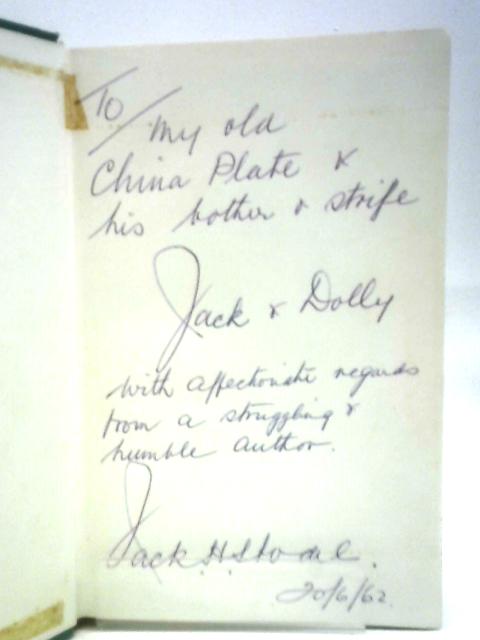 To / my old
China Plate &
his bother & strife
Jack & Dolly
with affectionate regards
from a struggling &
humble author.
Jack H.
20/6/62